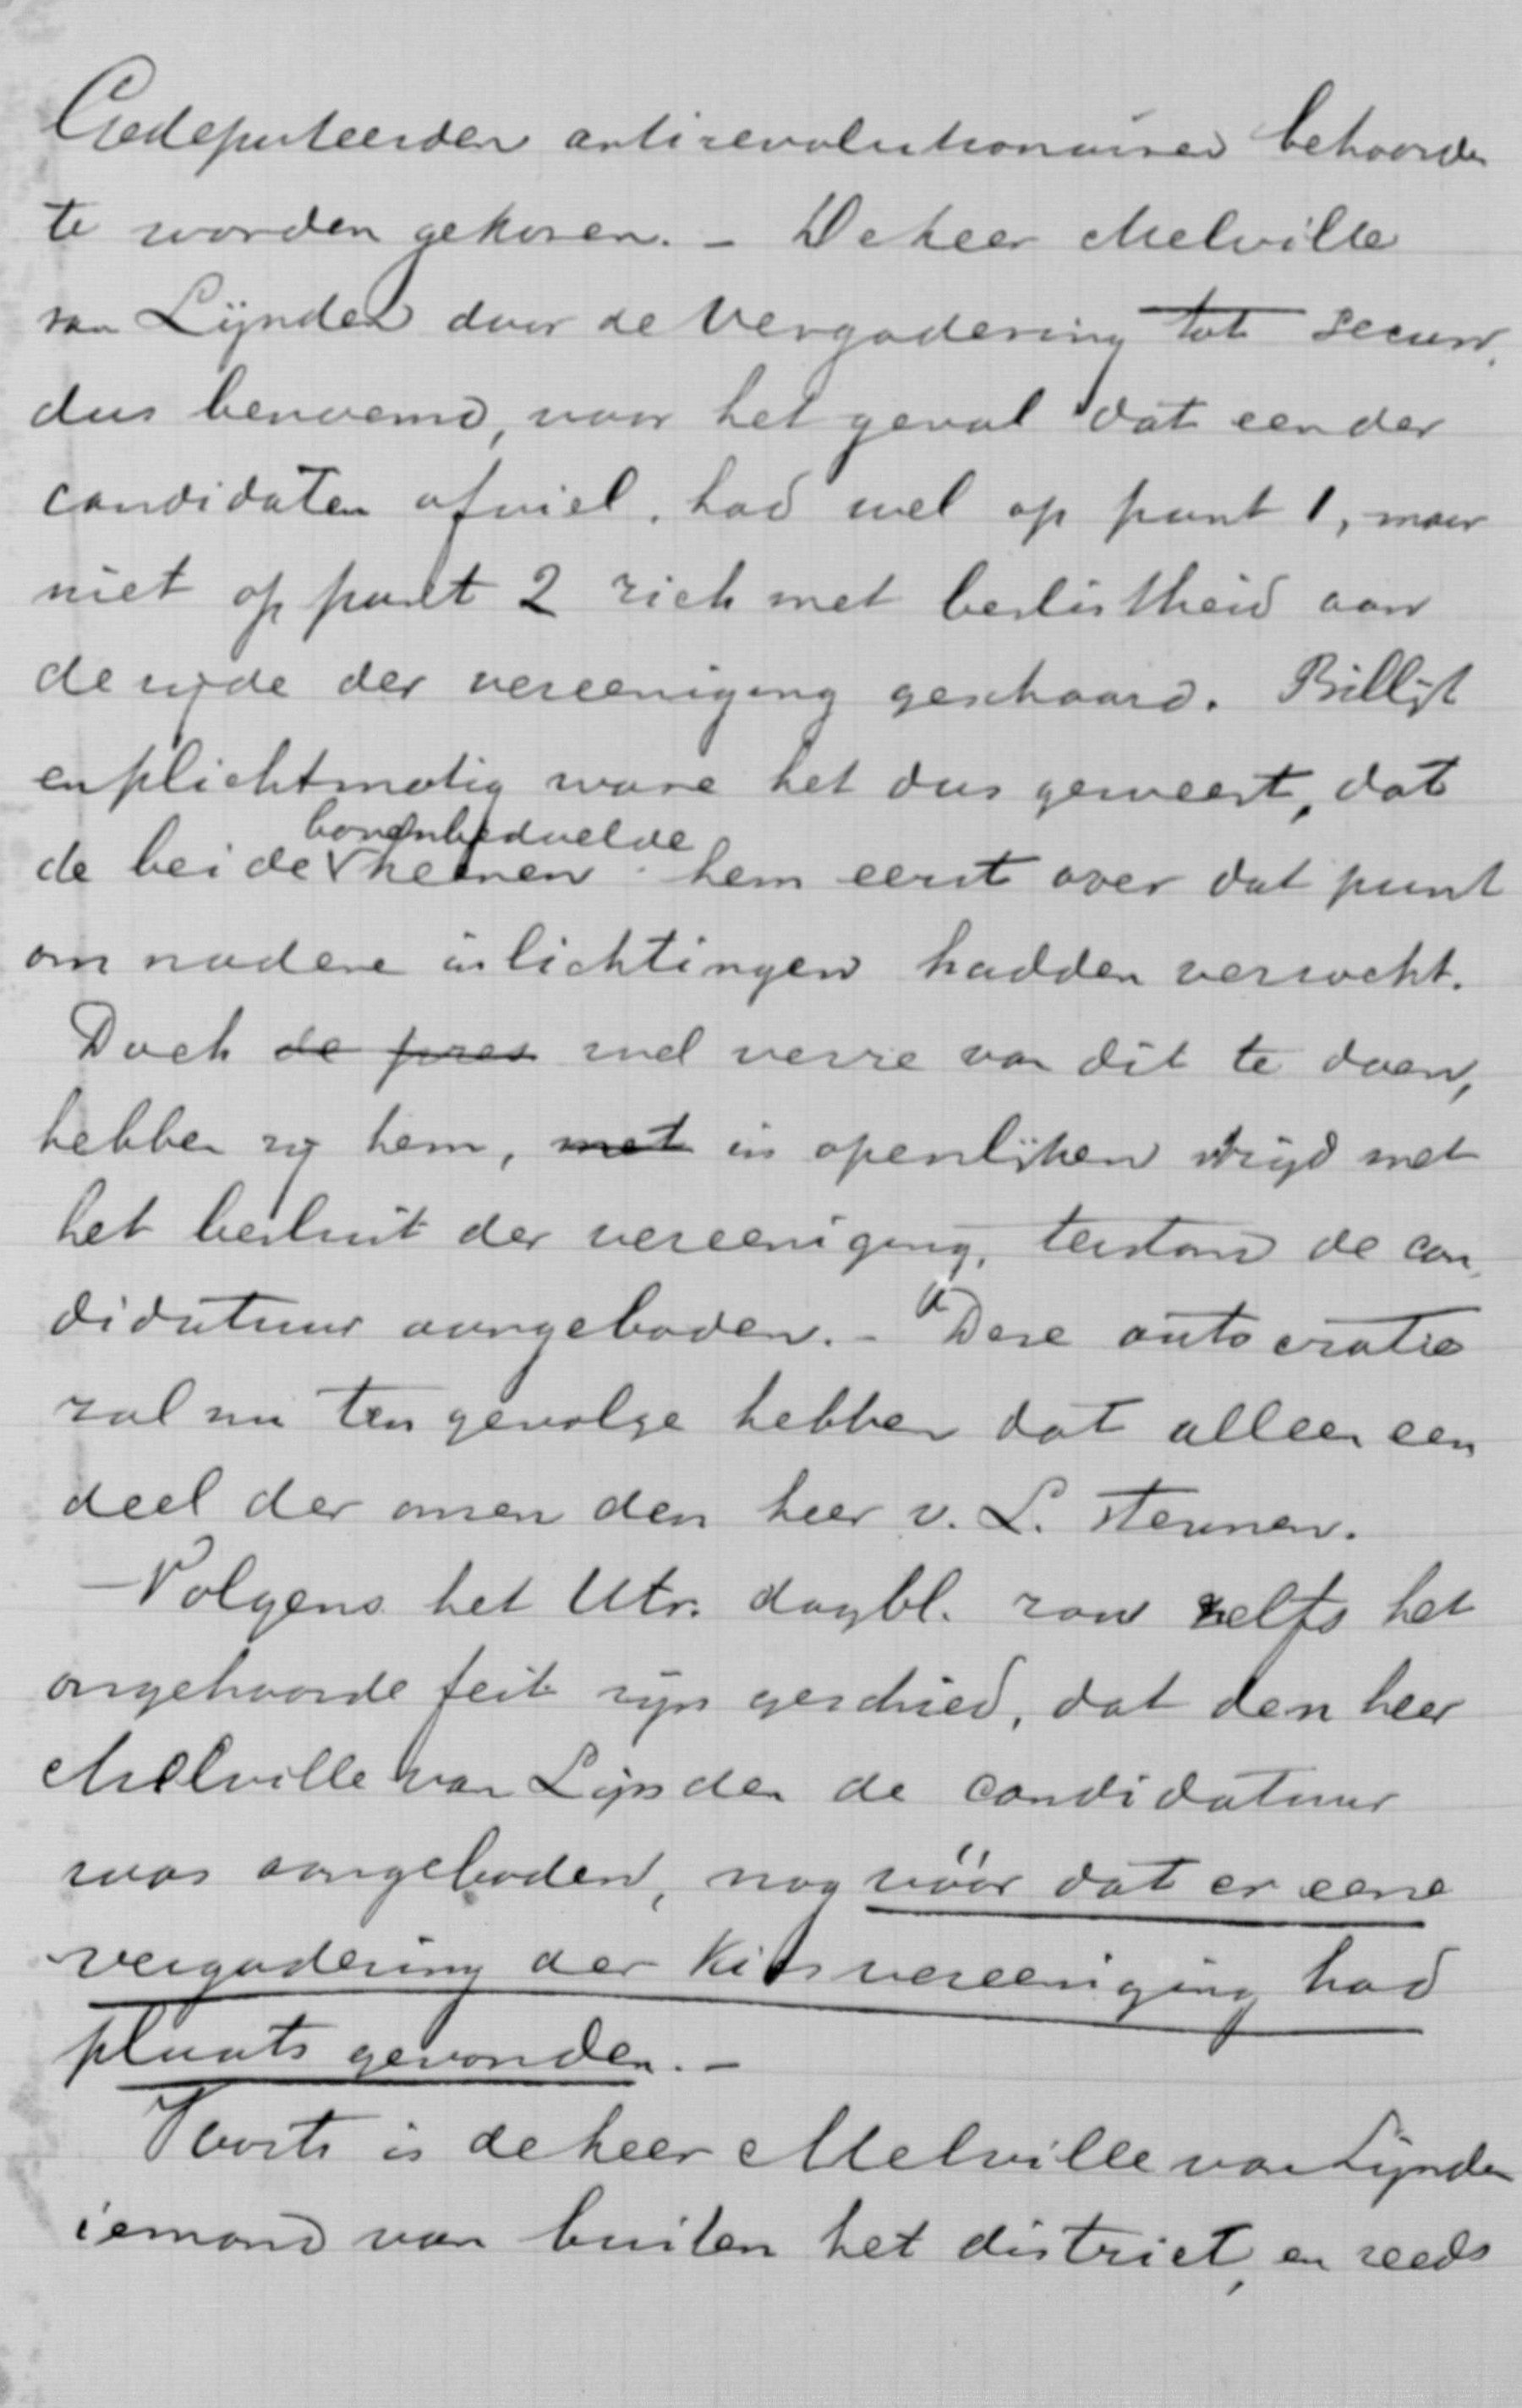 Gedeputeerden antirevolutionairen behoorden
te worden gekozen. – De heer Melville
van Lijnden door de Vergadering tot secun-
dus benoemd, voor het geval dat een der
candidaten afviel, had wel op punt 1, maar
niet op punt 2 zich met beslistheid aan
de zijde der vereeniging geschaard. Billijk
en plichtmatig ware het dus geweest, dat
de beide bovenbedoelde heeren hem eerst over dat punt
om nadere inlichtingen hadden verzocht.
Doch de pres wel verre van dit te doen,
hebben zij hem, met in openlijken strijd met
het besluit der vereeniging, terstond de can-
didatuur aangeboden. – Deze autocratie
zal nu ten gevolge hebben dat alleen een
deel der onzen den heer v. L. steunen.
– Volgens het Utr. dagbl. zou zelfs het
ongehoorde feit zijn geschied, dat den heer
Melville van Lijnden de candidatuur
was aangeboden, nog vóór dat er eene
vergadering der Kiesvereeniging had
plaats gevonden. –
Voorts is de heer Melville van Lijnden
iemand van buiten het district, en reeds